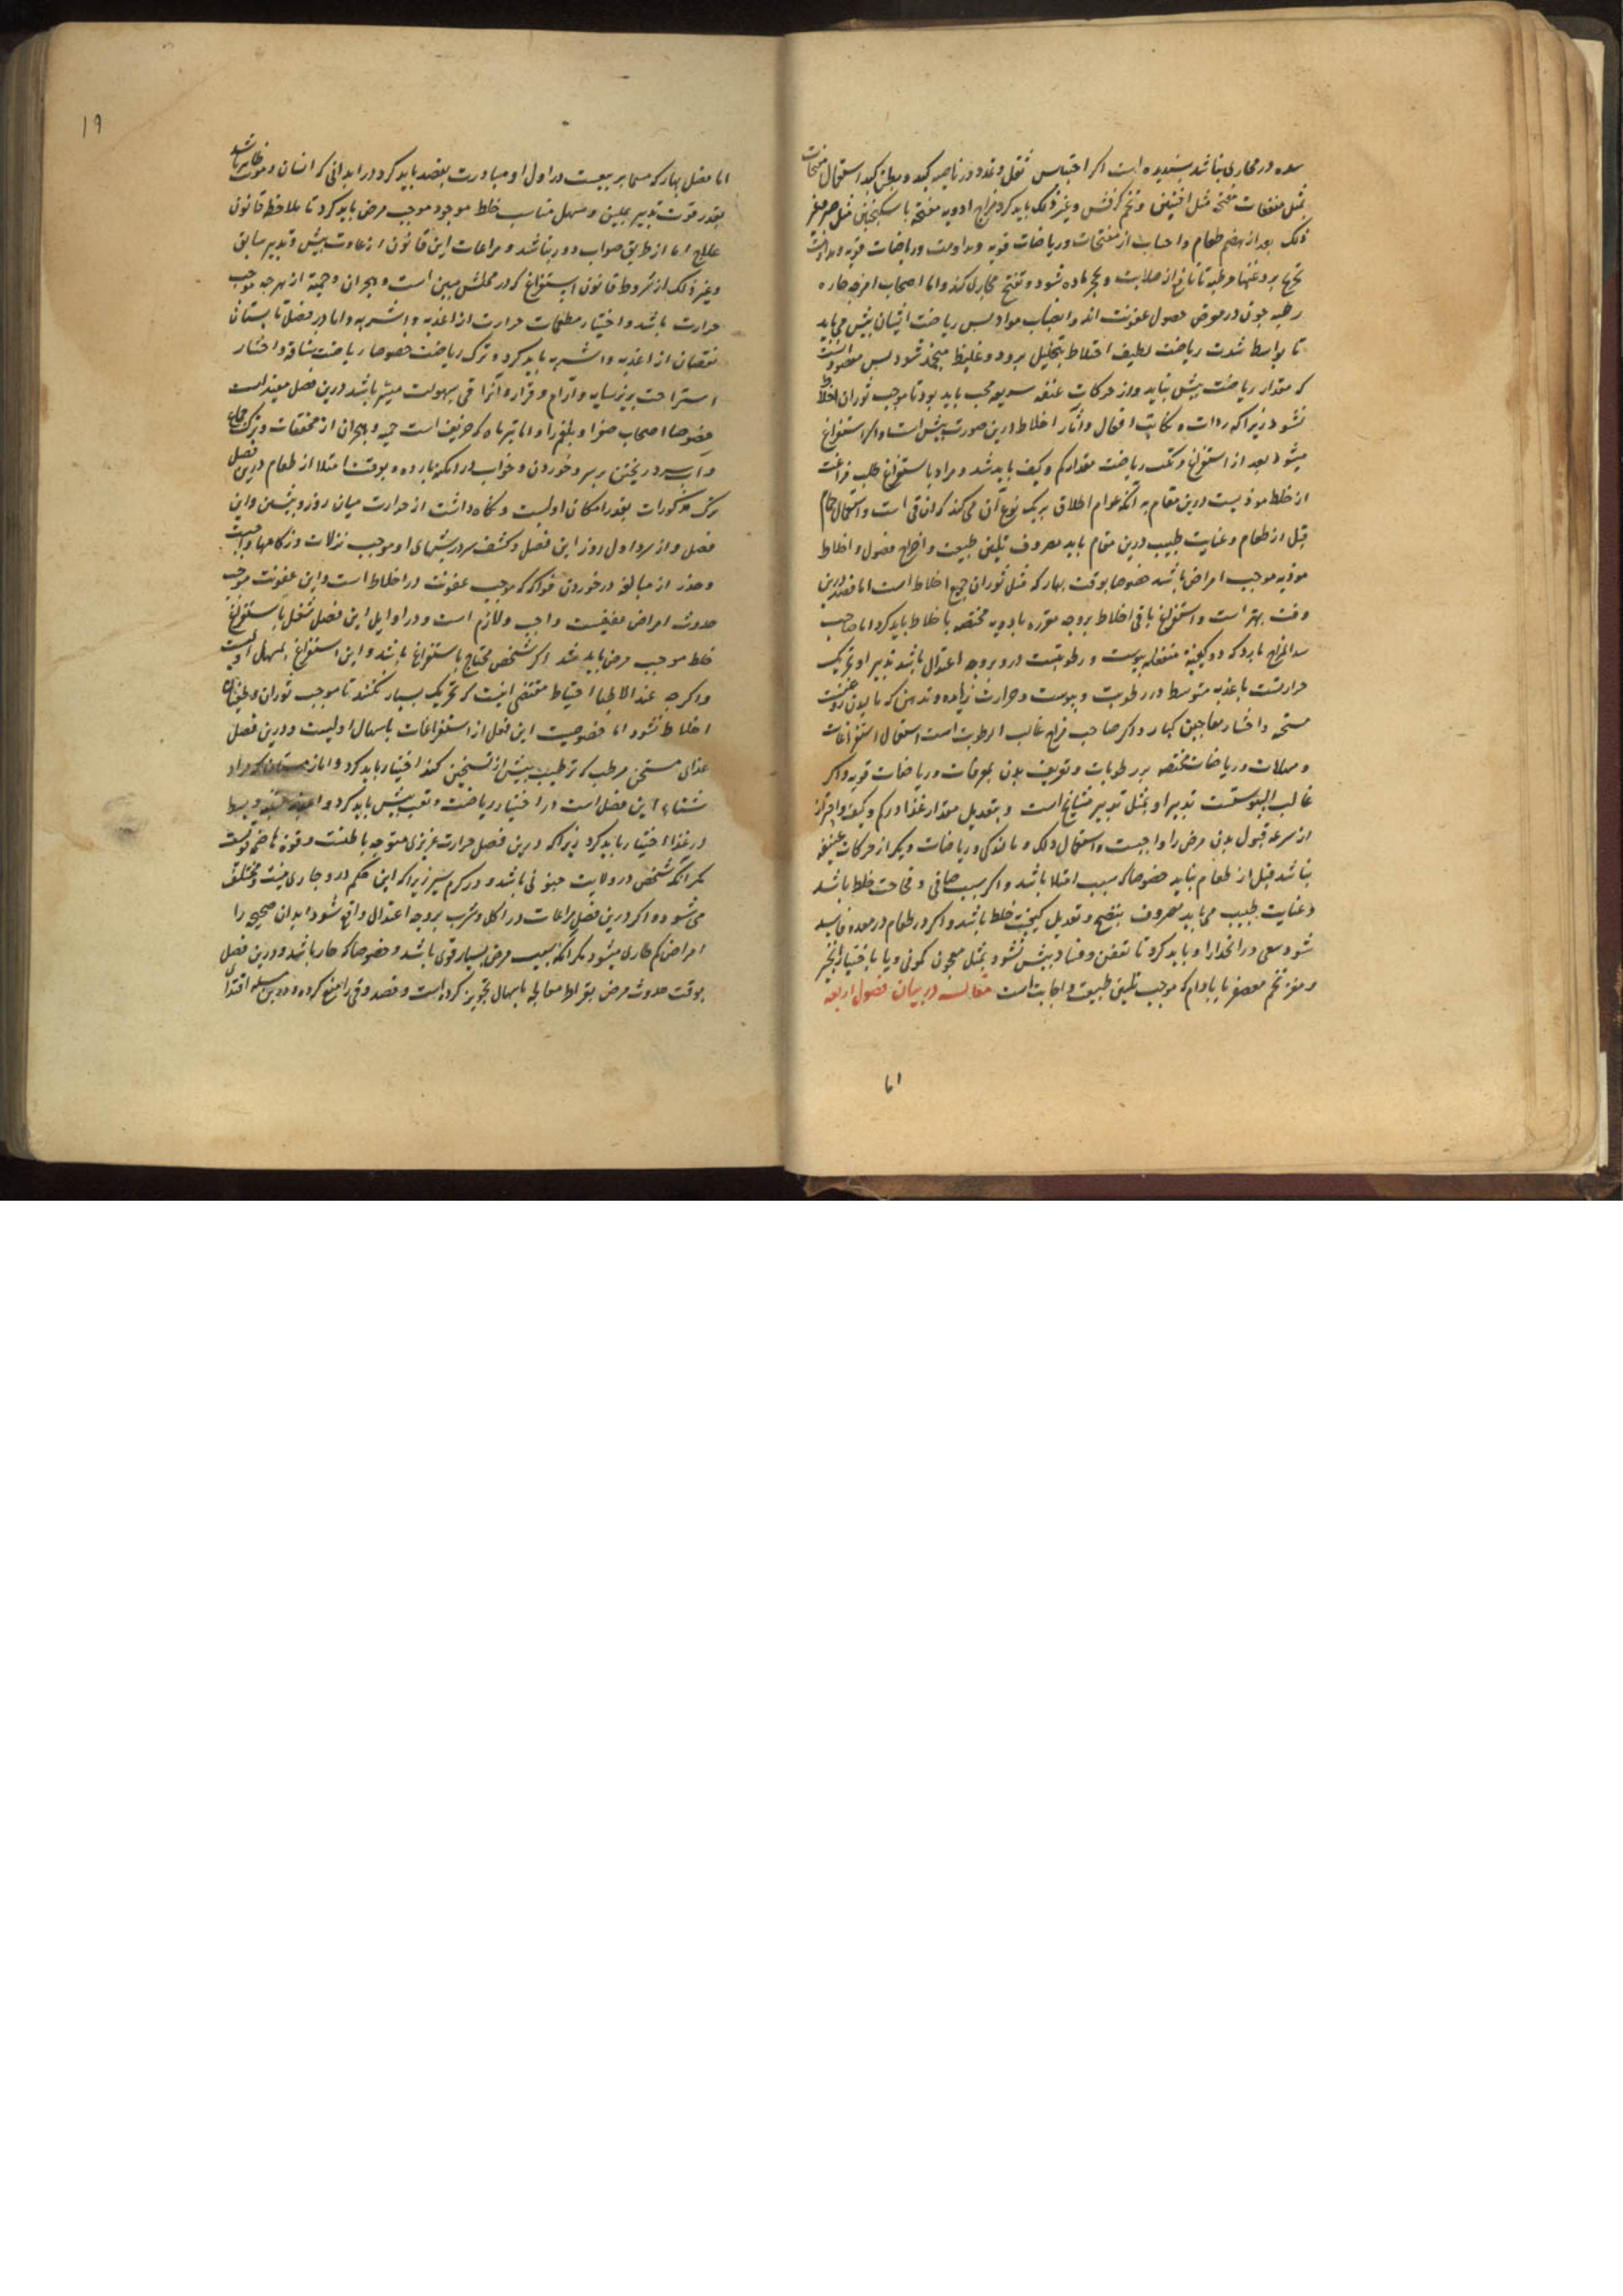 سده در مجاری نباشد پسندیده است اکر احتباس ثقل و تمدد در ناحیه کبد و بطن کبد استعمال مفتحات
بمثل منقعات مفتحه مثل افسنتین و تخم کرفس و غیر ذلک باید کرد مزاج ادویه مفتحه با سکنجبین مثل صبر
ذلک بعد از هضم طعام و اجتناب از مفتحات و ریاضات قویه و مداومت
تا مانع از صلابت و تحجر ماده شود و تفتیح مجاری کند و اما اصحاب امزجه حاره
رطبه چون در معرض حصول عفونت اند و انصباب مواد پس ریاضت ایشان بیش می باید
تا بواسطه شدت ریاضت لطیف اخلاط بتحلیل برود و غلیظ منجمد شود پس مقصود
که مقدار ریاضت بیش نباید و از حرکات عنیفه سریعه مجتنب باید بود تا موجب ثوران اخلاط
نشود زیرا که ردات و نکایت افعال و آثار اخلاط درین صورت بیش است و اکر استفراغ
میشود بعد از استفراغ و تکسب ریاضت مقدار کم و کیف باید شد و مراد باستفراغ طلب فراغت
از خلط موذیست درین مقام به آنکه عوام اطلاق بر یک نوع آن می کنند که ان قی است و استعمال حمام
قبل از طعام و عنایت طبیب درین مقام باید مصروف بتلیین طبیعت و اخراج فضول و اخلاط
موذیه موجب امراض باشد خصوصا بوقت بهار که مثل ثوران جمیع اخلاط است اما فصد درین
وقت بهتر است و استفراغ باقی اخلاط بر وجه مقرره بادویه مختصه با خلاط باید کرد اما صاحب
مزاج بارد که دو کیفیة منفعله یبوست و رطوبتست درو بر وجه اعتدال باشد تدبیر او بتحریک
حرارتست باغذیه متوسط در رطوبت و یبوست و حرارت زیاده و تدهین
مسخنه و اختیار معاجین کبار و اکر صاحب مزاج غالب الرطوبت است استعمال استفراغات
و مسهلات و ریاضات مختصه بر رطوبات و تعریف بدن بمعرقات و ریاضات قویه و اکر
غالب الیبوستست تدبیر او بمثل تدبیر مشایخ است و بتعدیل مقدار غذا در کم و کیف و احتراز
از سرعه قبول بدن مرض را واجبست و استعمال دلک و مالیدکی و ریاضات و یکر از حرکات عنیفه
نباشد قبل از طعام نباید خصوصا که سبب امتلا باشد و اکر سبب صافی و فجاجت خلط باشد
عنایت طبیب می باید مصروف بنضج و تعدیل کیفیت خلط باشد و اکر در طعام در معده فاسد
شود سعی در انحدار او باید کرد تا تعفن و فساد بیش نشود بمثل معجون کمونی و یا باختیار انجیر
و مغز تخم معصفر یا بادام که موجب تلیین طبیعت و اجابت است مقاله در بیان فصول اربعه
اما
۱۹
اما فصل بهار که مسما بربیعست در اول او مبادرت بفصد باید کرد در ابدانی که انسان دموی ظاهر باشد
بقدر قوت تدبیر بملین و مسهل مناسب خلط موجود موجب مرض باید کرد تا ملاحظه قانون
علاج اما از طریق صواب دور نباشد و مراعات این قانون از عادت پیش و تدبیر سابق
و غیر ذلک از شروط قانون استفراغ که در محلش مبین است و هجران و حمیة از هر چه موجب
حرارت باشد و اختیار مطفیات حرارت از اغذیه و اشربه و اما در فصل تابستان
نقصان از اغذیه و اشربه باید کرد و ترک ریاضت خصوصا ریاضت شاقه و اختیار
استراحت بزیر سایه و آرام و قرار و آنرا قی بسهولت میسر باشد درین فصل مفید است
خصوصا اصحاب صفرا و بلغم را و اما تیرماه که خریف است حمیه و هجران از مجففات و ترک جماع
و اب سرد ریختن بر سر و خوردن و خواب در امکنه بارده و بوقت امتلا از طعام درین فصل
ترک مذکورات بقدر امکان اولیست و نکاه داشت از حرارت میان روز و پیشین و این
فصل و از سرد اول روز این فصل و کشف سر در شبهای او موجب نزلات و زکامها واجبست
و حذر از مبالغه در خوردن فواکه که موجب عفونت در اخلاط است و این عفونت موجب
حدوث امراض عفنیست واجب و لازم است و در اوایل این فصل شغل باستفراغ
خلط موجب مرض باید شد اکر شخص محتاج باستفراغ باشد و این استفراغ بمسهل اولیست
و اکر چه عند الاطبا احتیاط مقتضی اینست که تحریک بسیار نکنند تا موجب ثوران و طغیان
اخلاط نشود اما خصوصیت این فصل از استفراغات باسهال اولیست و درین فصل
غذای مسخن مرطب که ترطیب بیش از تسخین کند اختیار باید کرد و اما زمستان که مراد
شتاء این فصل است درو اختیار ریاضت و تعب بیش باید کرد
در غذا اختیار باید کرد زیرا که درین فصل حرارت غریزی متوجه باطنست و قوة هاضمه قویست
مکر آنکه شخص در ولایت جنوبی باشد و در کرم سیر زیرا که این حکم درو جاری نیست و مختلف
می شود و اکر درین فصل مراعات در اکل و شرب بر وجه اعتدال واقع شود ابدان صحیحه را
امراض کم طاری میشود مکر آنکه سبب مرض بسیار قوی باشد و خصوصا که حار باشد و درین فصل
بوقت حدوث مرض بقراط معالجه باسهال تجویز کرده است و فصد و قی را منع کرده و درین مسله اقتدا